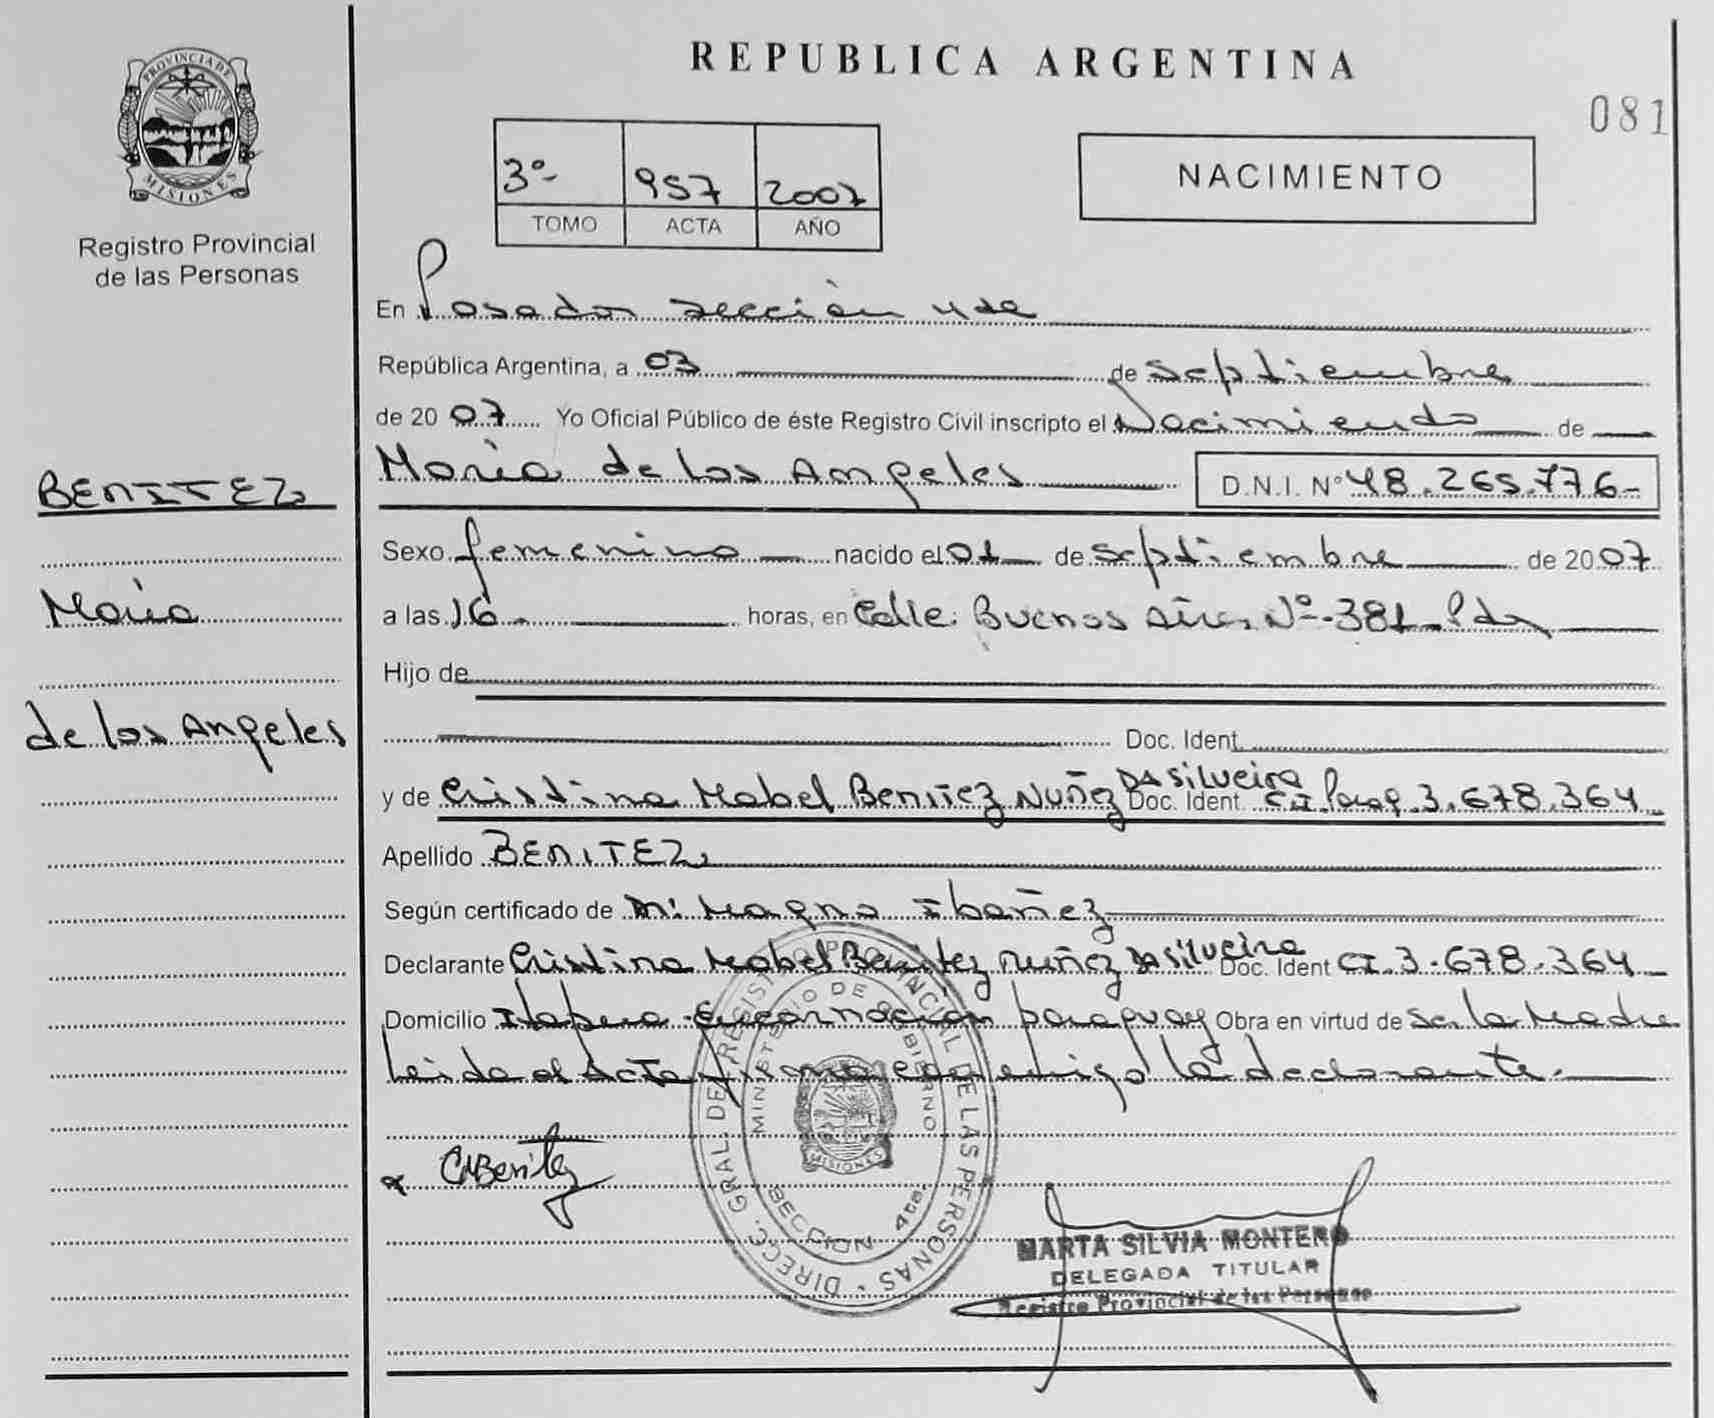 REPUBLICA ARGENTINA
081
PROVINCIA DE
MISIONES
Registro Provincial
de las Personas
3º- 957 2007
TOMO ACTA AÑO
NACIMIENTO
En Posadas sección
República Argentina, a 03 de septiembre
de 20 07 Yo Oficial Público de éste Registro Civil inscripto el Nacimiento de
María de los Angeles D.N.I. Nº 48.265.776-
BENITEZ
María
de los Angeles
Sexo femenino nacido el 01 de septiembre de 20 07
a las 16 horas, en Calle: Buenos Aires Nº-381 Pdas
Hijo de
Doc. Ident.
y de Cristina Mabel Benitez Nuñez DA Silveira Doc. Ident. CI Parag. 3.678.364
Apellido BENITEZ
Según certificado de Magna Ibañez
Declarante Cristina Mabel Benitez Nuñez DA Silveira Doc. Ident CI. 3.678.364
Domicilio Itapua-Encarnación paraguay Obra en virtud de ser la Madre
Leida el Acta firma conmigo la declarante.-
CMBenitez
DIRECC. GRAL DEL REGISTRO PROVINCIAL DE LAS PERSONAS
MINISTERIO DE GOBIERNO
MISIONES
SECCION 4ta.
MARTA SILVIA MONTERO
DELEGADA TITULAR
Registro Provincial de las Personas